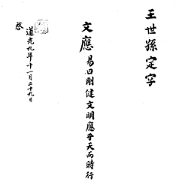 王世孫定字
文應 易曰剛健文明應乎天而時行
道光九年十一月二十九日